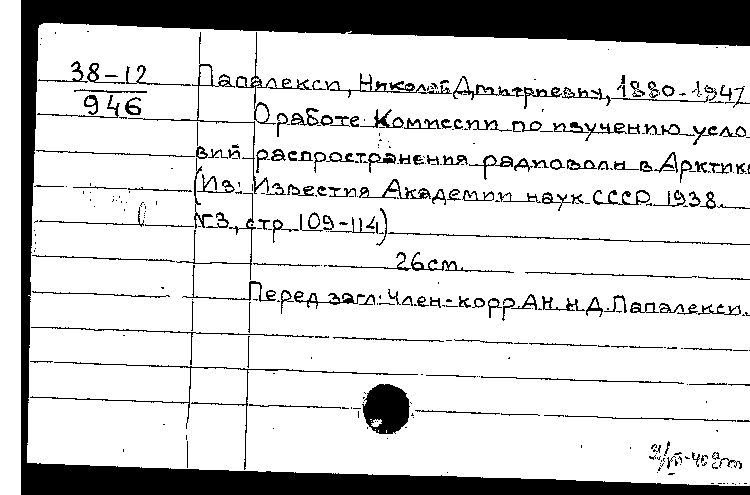 38-12
946
Папалекси, Николай Дмитриевич, 1880-1947
О работе Комиссии по изучению усло
вий распространения радиоволн в Арктик
(Из: Известия Академии наук СССР. 1938.
№3, стр. 109-114)
26см.
Перед загл: Член-корр. АН. Н.Д. Папалекси.